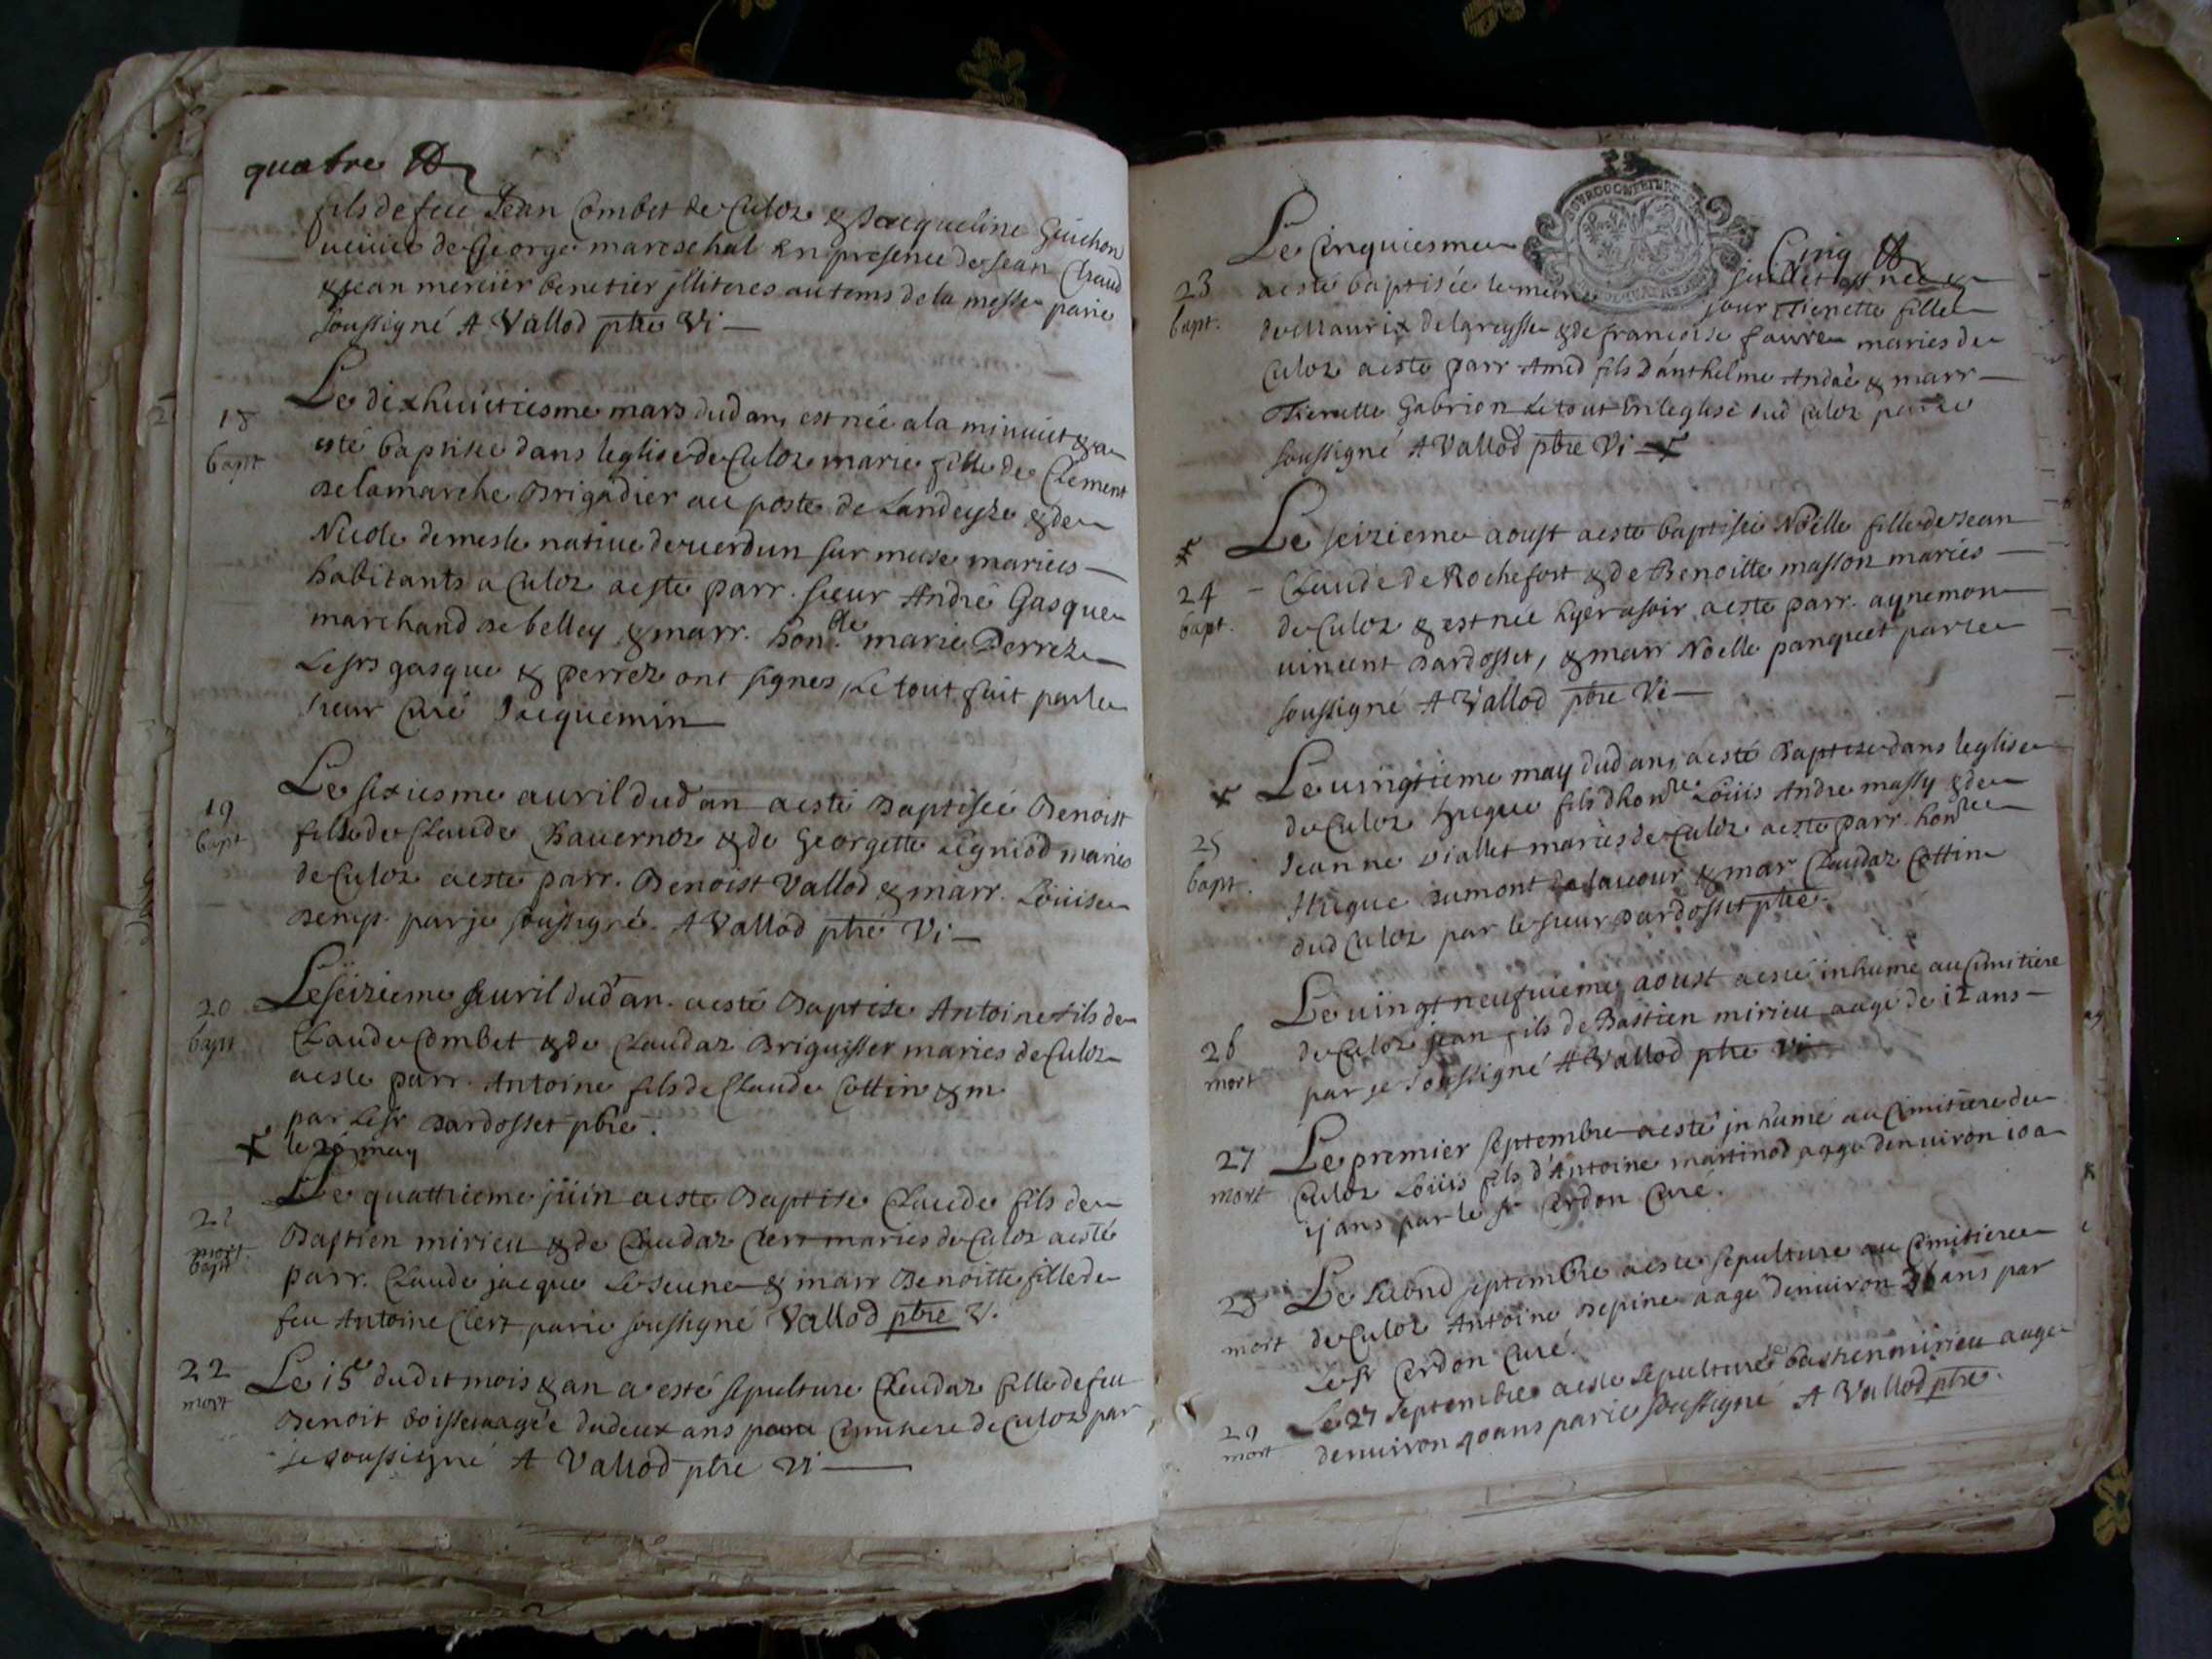 quatre
fils de feu Jean Combet de Culoz & Jacqueline Guichon
veuve de George mareschal en presence de Jean Chaud
& Jean mercier benetier jlliteres au tems de la messe par je
soussigné A Vallod pbre Vi
18
bapt
Le dixhuictiesme mars dud an, est née a la minuict & a
esté baptisée dans leglise de Culoz marie fille de Clement
Delamarche Brigadier au poste de Landeyze & de
Nicole demesle natiue de uerdun sur meuse mariés
habitants a Culoz a esté parr. sieur André Gasque
marchand de belley & marr. hon.ble marie Perrez
Lesrs gasque & perrez ont signes, Le tout fait par le
sieur Curé Jacquemin
19
bapt
Le sixiesme auril dud an a esté Baptiseé Benoist
fille de Claude Chauernoz & de Georgette Legniod mariés
de Culoz a esté parr. Benoist Vallod & marr. Loüise
par je soussigné. A Vallod pbre Vi
20
bapt
Le seizieme Auril dud an. a esté Baptise Antoine fils de
Claude Combet & de Claudaz Briguisser maries de Culoz
a esté parr. Antoine fils de Claude Cottin & m
par Lesr Dardosset pbre.
le 20 may
21
mort
bapt
Le quattrieme jüin a esté Baptise Claude fils de
Bastien mirieu & de Claudaz Clert maries de Culoz a esté
parr. Claude jacque Le Jeune & marr Benoitte fille de
feu Antoine Clert par je soussigné Vallod pbre V.
22
mort
Le 15 dudit mois & an a esté sepulture Claudaz fille de feu
Benoit boisson aagée dudeux ans cimitiere de Culoz par
je soussigné A Vallod pbre Vi
Cinq
23
bapt.
Le Cinquiesme juillet est née &
a esté baptisée le meme jour Thienette fille
de Maurix delgreysse & de francoise faure maries de
Culoz a esté parr Amed fils d'anthelme André & marr
Thienette Gabrion Le tout en leglise dud Culoz par je
soussigné A Vallod pbre Vi
24
bapt.
Le seizieme aoust a esté baptisée Nöelle fille de Jean
Claude de Rochefort & de Benoitte masson mariés
de Culoz & est née hyer a soir a esté parr. aynemon
uincent Dardosset, & marr Nöelle panquet par je
soussigné A Vallod pbre Vi
25
bapt.
Le uingtieme may dud an, a esté Baptize dans leglise
de Culoz hugue fils dhonble Loüis Andre massy & de
Jeanne Viallet mariés de Culoz a esté parr. honble
Hugue Dumont de & mar Claudaz Cottin
dud Culoz par le sieur Dardosset pbre.
26
mort
Le uingt neufuieme aoust a esté inhume au Cimitiere
de Culoz jean fils de Bastien mirieu aagé de 12 ans
par je soussigné A Vallod pbre Vi
27
mort
Le premier septembre a esté jnhumé au Cimitiere de
Culoz Loüis fils d'Antoine martinod aagé denuiron 10 a
ans par le sr Cerdon Curé.
28
mort
Le second septembre a esté sepulturé au Cimitiere
de Culoz Antoine Depine aagé denuiron 36 ans par
Lesr Cerdon Curé.
29
mort
Le 27 septembre a esté sepulturé bastien mirieu aage
denuiron 40 ans par je soussigné A Vallod pbre.